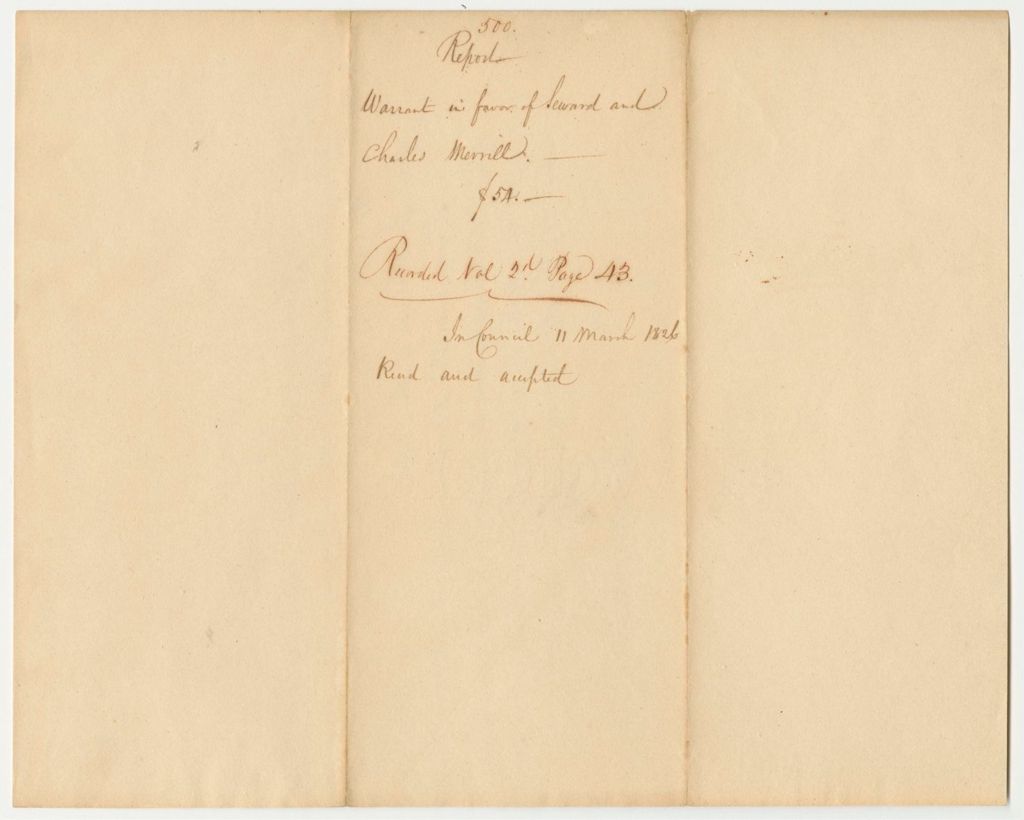 500.
Report
Warrant in favor of Seward and
Charles Merrill. —
$54. —
Recorded Vol 2d. Page 43.
In Council 11 March 1826
Read and accepted